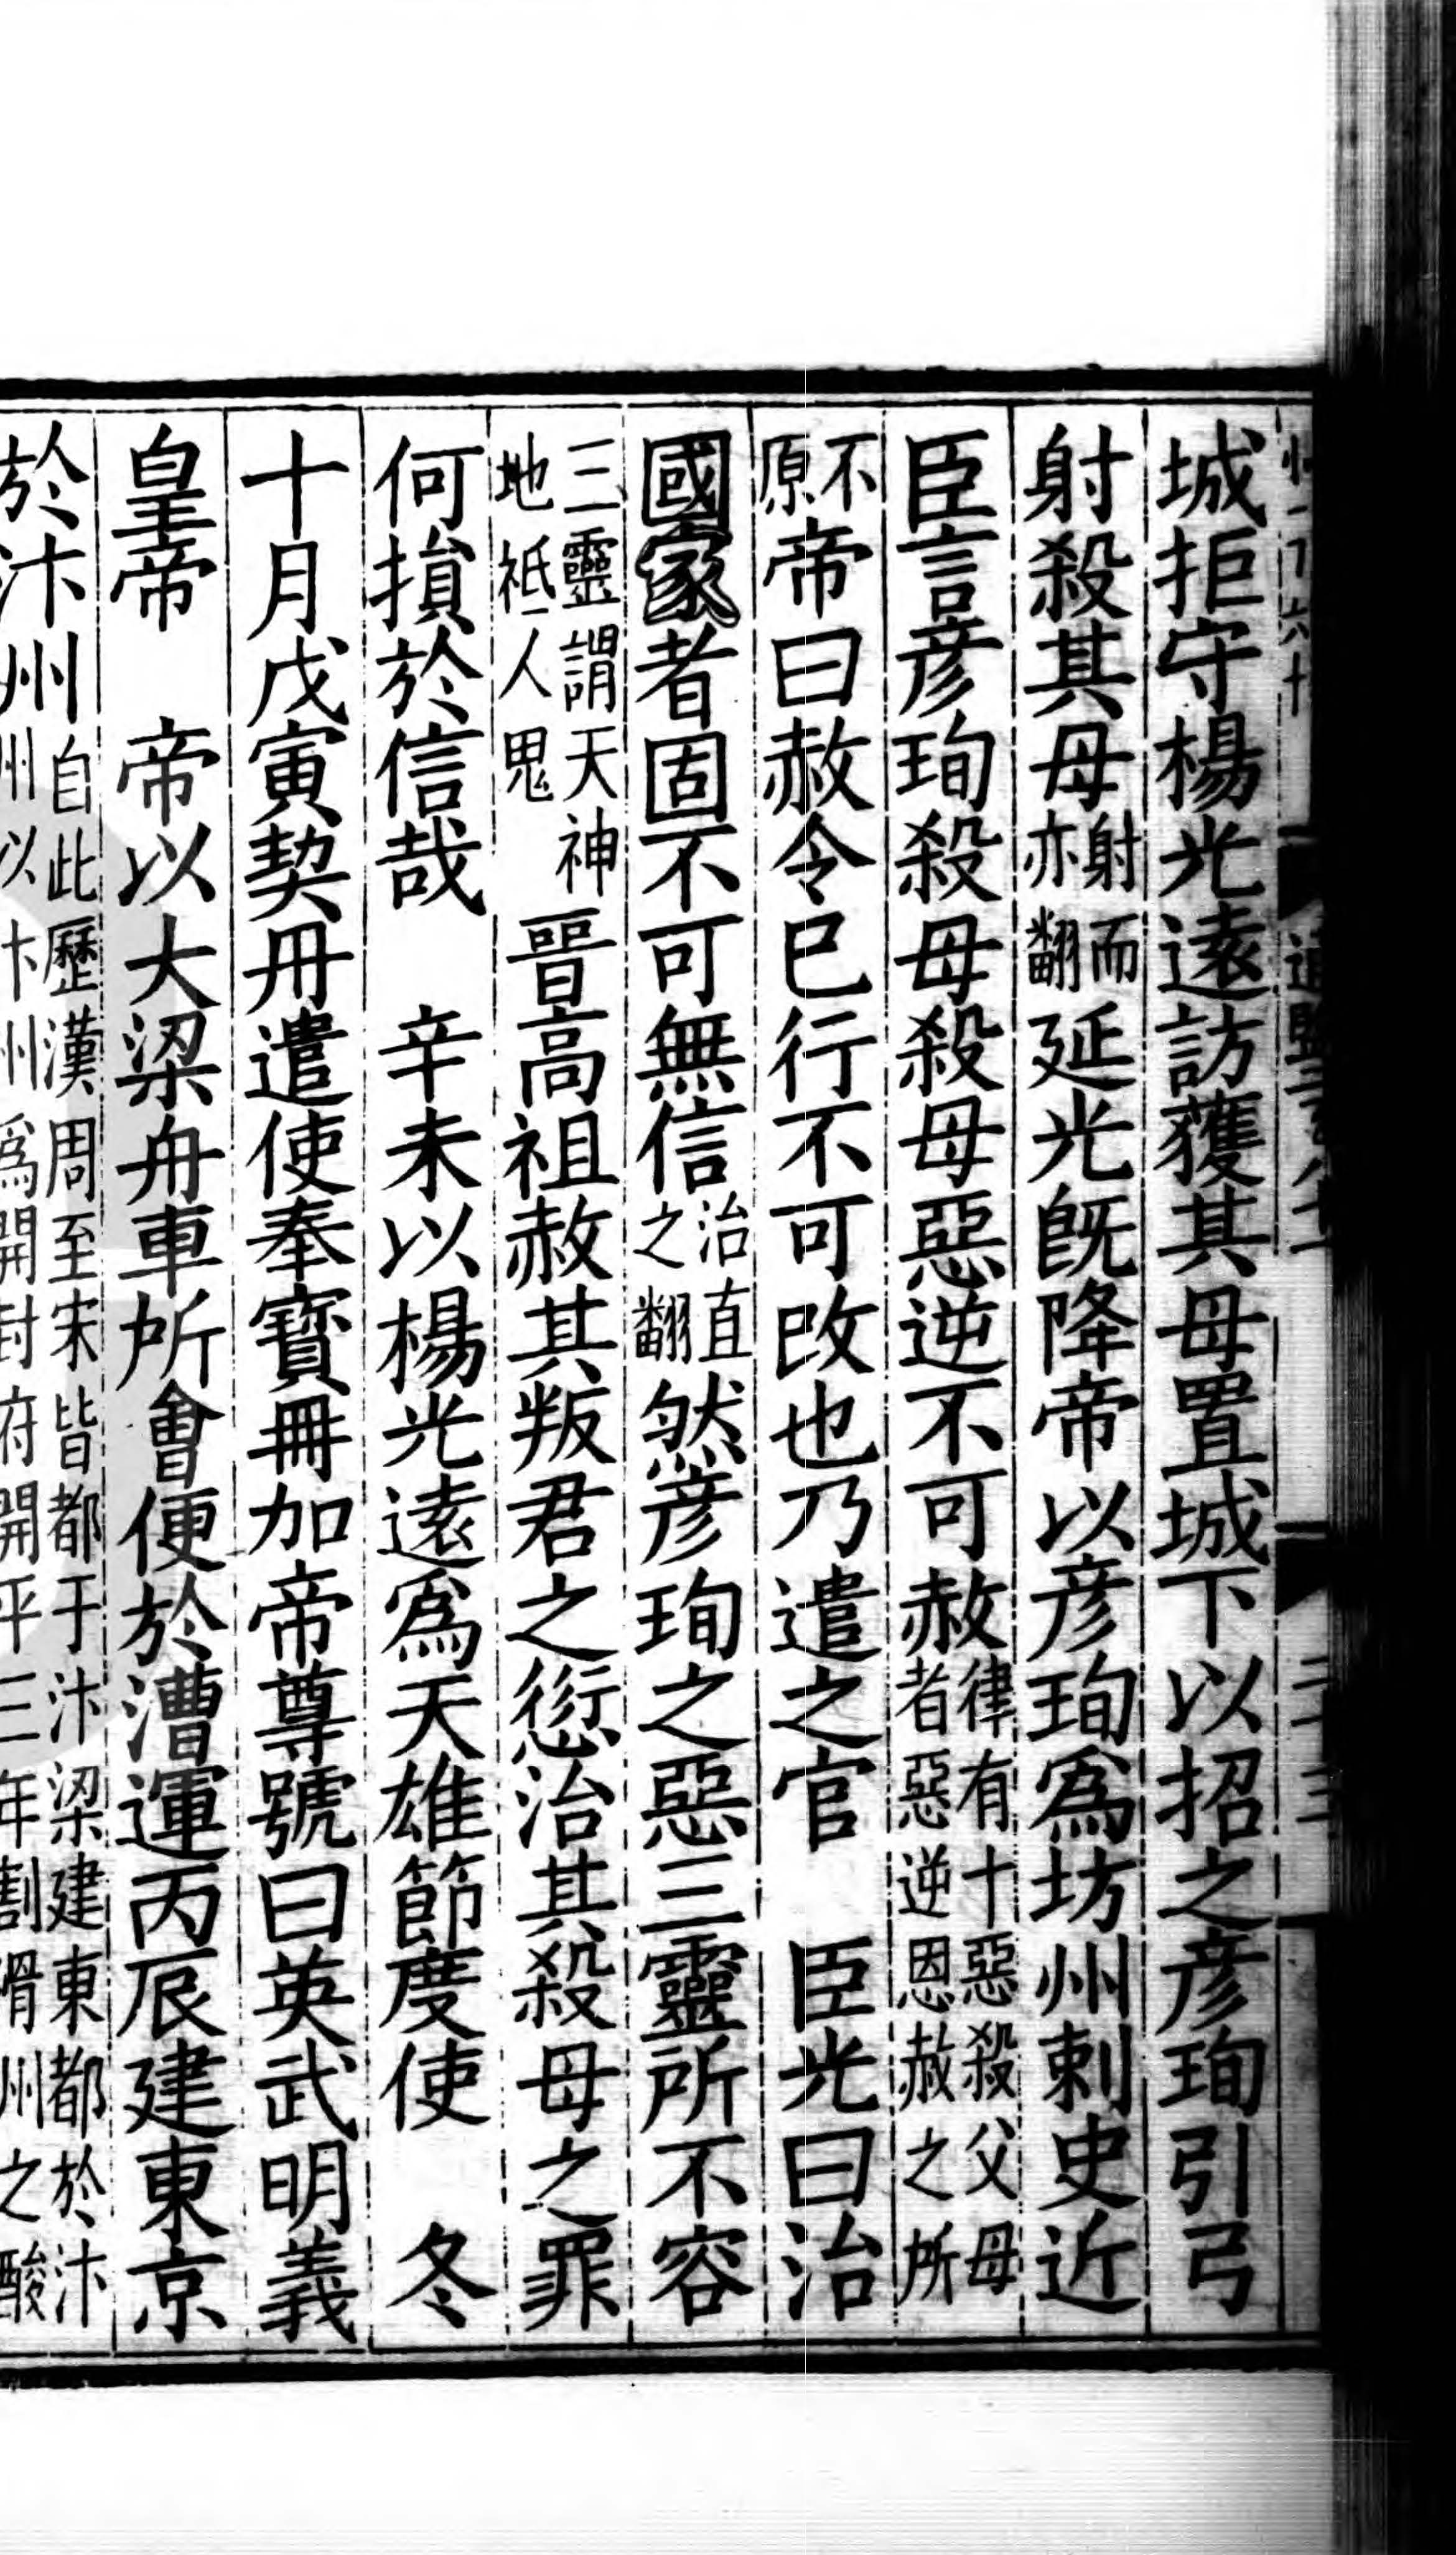 城拒守楊光遠訪獲其母置城下以招之彦珣引弓
射殺其母射而亦翻延光旣降帝以彦珣爲坊州刺史近
臣言彦珣殺母殺母惡逆不可赦律有十惡殺父母者惡逆恩赦之所
不原帝曰赦令已行不可改也乃遣之官　臣光曰治
國家者固不可無信治直之翻然彦珣之惡三靈所不容
三靈謂天神地祗人鬼晉高祖赦其叛君之愆治其殺母之罪
何損於信哉　辛未以楊光遠爲天雄節度使　冬
十月戊寅契丹遣使奉寶冊加帝尊號曰英武明義
皇帝　帝以大梁舟車所會便於漕運丙辰建東京
於汴州自此歷漢周至宋皆都于汴梁建東都於汴州以汴州爲開封府開平三年割滑州之酸